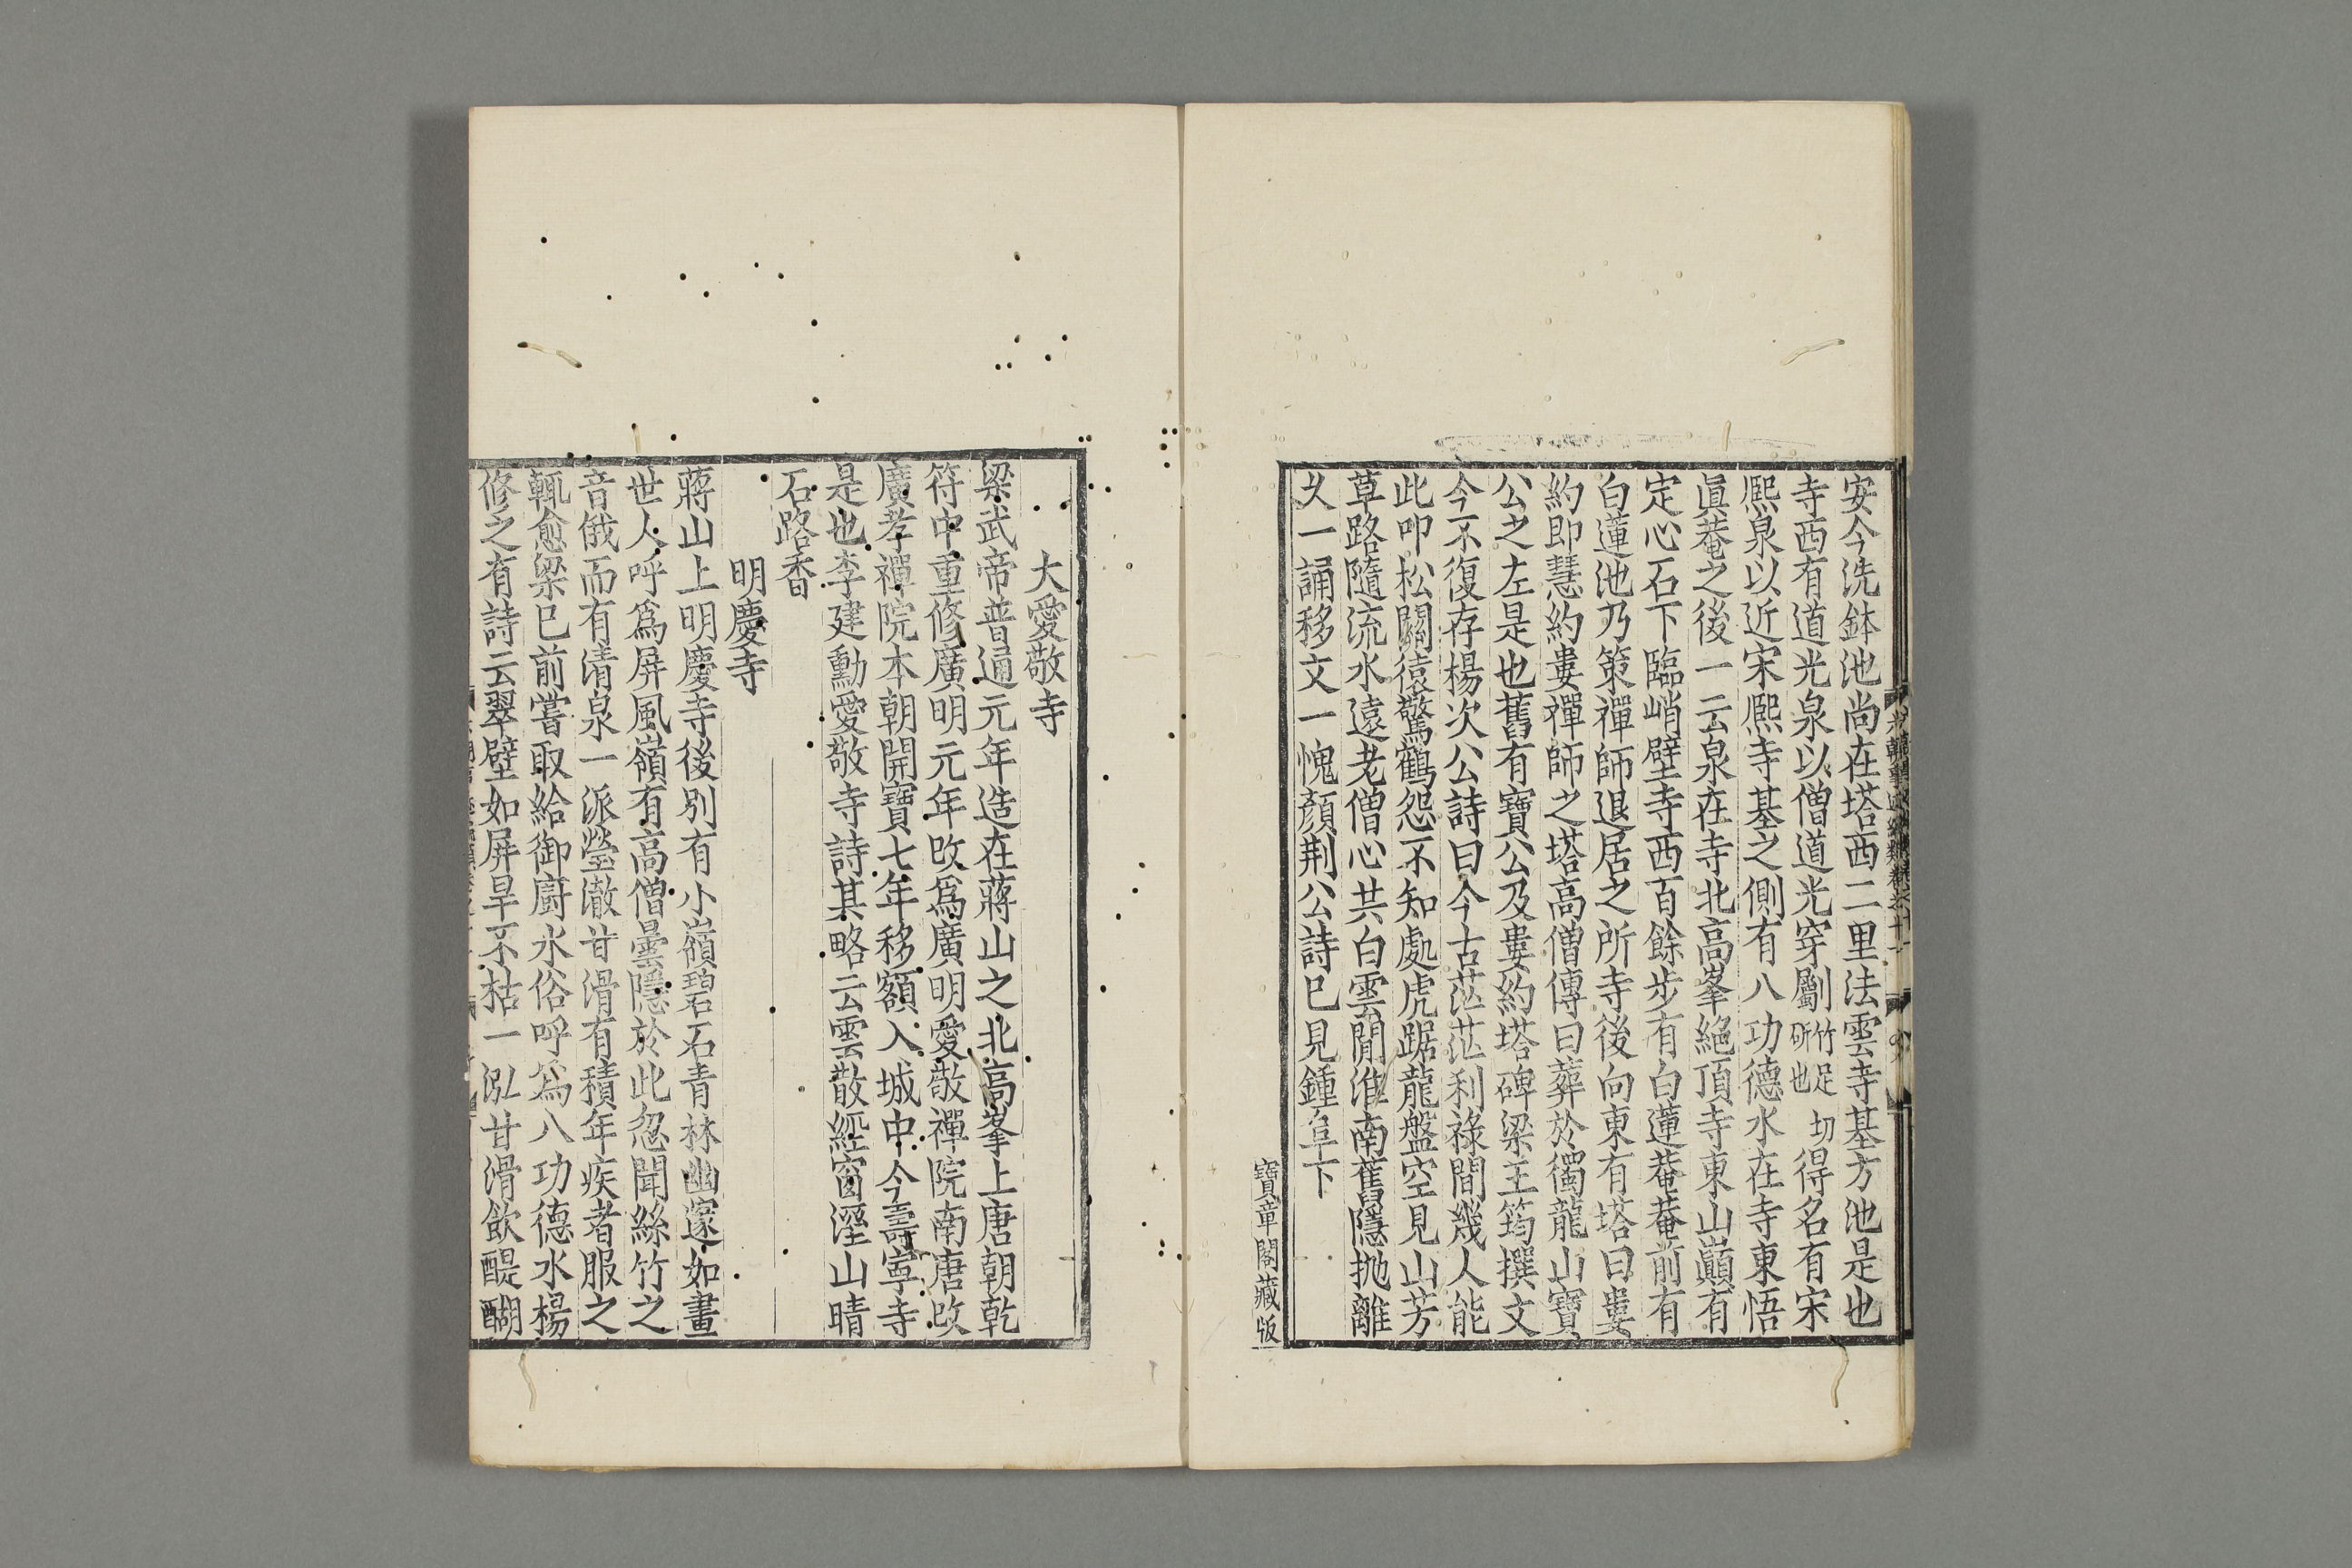 安今洗鉢池尚在塔西二里法雲寺基方池是也
寺西有道光泉以僧道光穿斸竹足切斫也得名有宋
熈泉以近宋熈寺基之側有八功德水在寺東悟
眞菴之後一云泉在寺北高峯絶頂寺東山巔有
定心石下臨峭壁寺西百餘步有白蓮菴菴前有
白蓮池乃策禪師退居之所寺後向東有塔曰婁
約即慧約婁禪師之塔高僧傳曰葬於獨龍山寶
公之左是也舊有寶公及婁約塔碑梁王筠撰文
今不復存楊次公詩曰今古茫茫利祿間幾人能
此叩松關猿驚鶴怨不知處虎踞龍盤空見山芳
草路隨流水遠老僧心共白雲閒淮南舊隱抛離
久一誦移文一愧顔荆公詩已見鍾阜下
寶章閣藏版
大愛敬寺
梁武帝普通元年造在蔣山之北高峯上唐朝乾
符中重修廣明元年改爲廣明愛敬禪院南唐改
廣孝禪院本朝開寶七年移額入城中今壽寧寺
是也李建勳愛敬寺詩其略云雲散經窗溼山晴
石路香
明慶寺
蔣山上明慶寺後別有小嶺碧石青林幽邃如畫
世人呼爲屏風嶺有高僧曇隱於此忽聞絲竹之
音俄而有清泉一派瑩澈甘滑有積年疾者服之
輒愈梁已前嘗取給御廚水俗呼爲八功德水楊
修之有詩云翠壁如屏旱不枯一泓甘滑飲醍醐